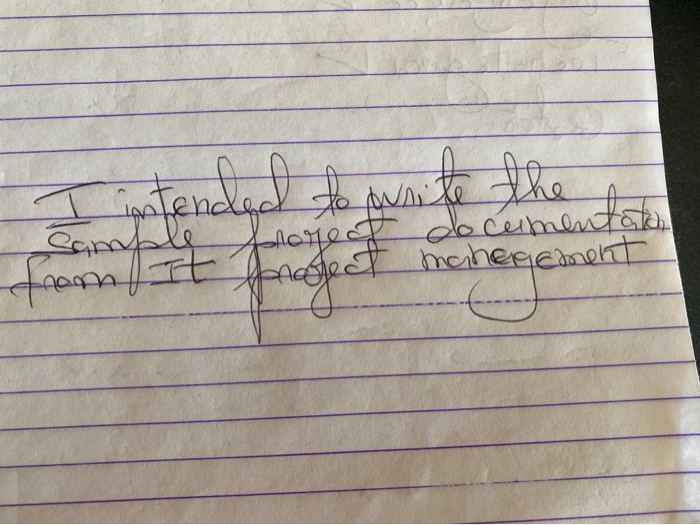 I intended to write the
Sample project documentation
from It project management